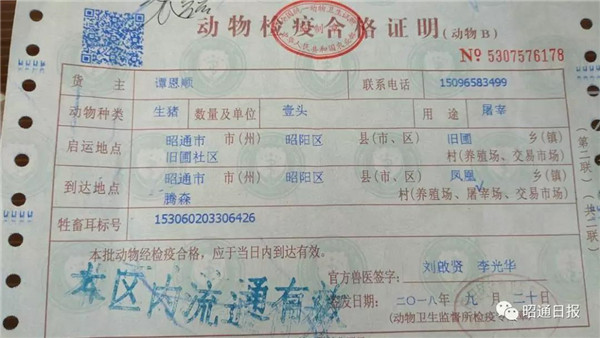 动物检疫合格证明(动物B)
№ 5307576178
货主 谭恩顺 联系电话 15096583499
动物种类 生猪 数量及单位 壹头 用途 屠宰
启运地点 昭通市 市(州) 昭阳区 县(市、区) 旧圃 乡(镇)
旧圃社区 村(养殖场、交易市场)
到达地点 昭通市 市(州) 昭阳区 县(市、区) 凤凰 乡(镇)
腾森 村(养殖场、屠宰场、交易市场)
牲畜耳标号 153060203306426
本批动物经检疫合格,应于当日内到达有效。
官方兽医签字: 刘啟贤 李光华
签发日期: 二〇一八年 九月 二十日
(动物卫生监督所检疫专用章)
本区内流通有效
第二联
共二联
昭通日报